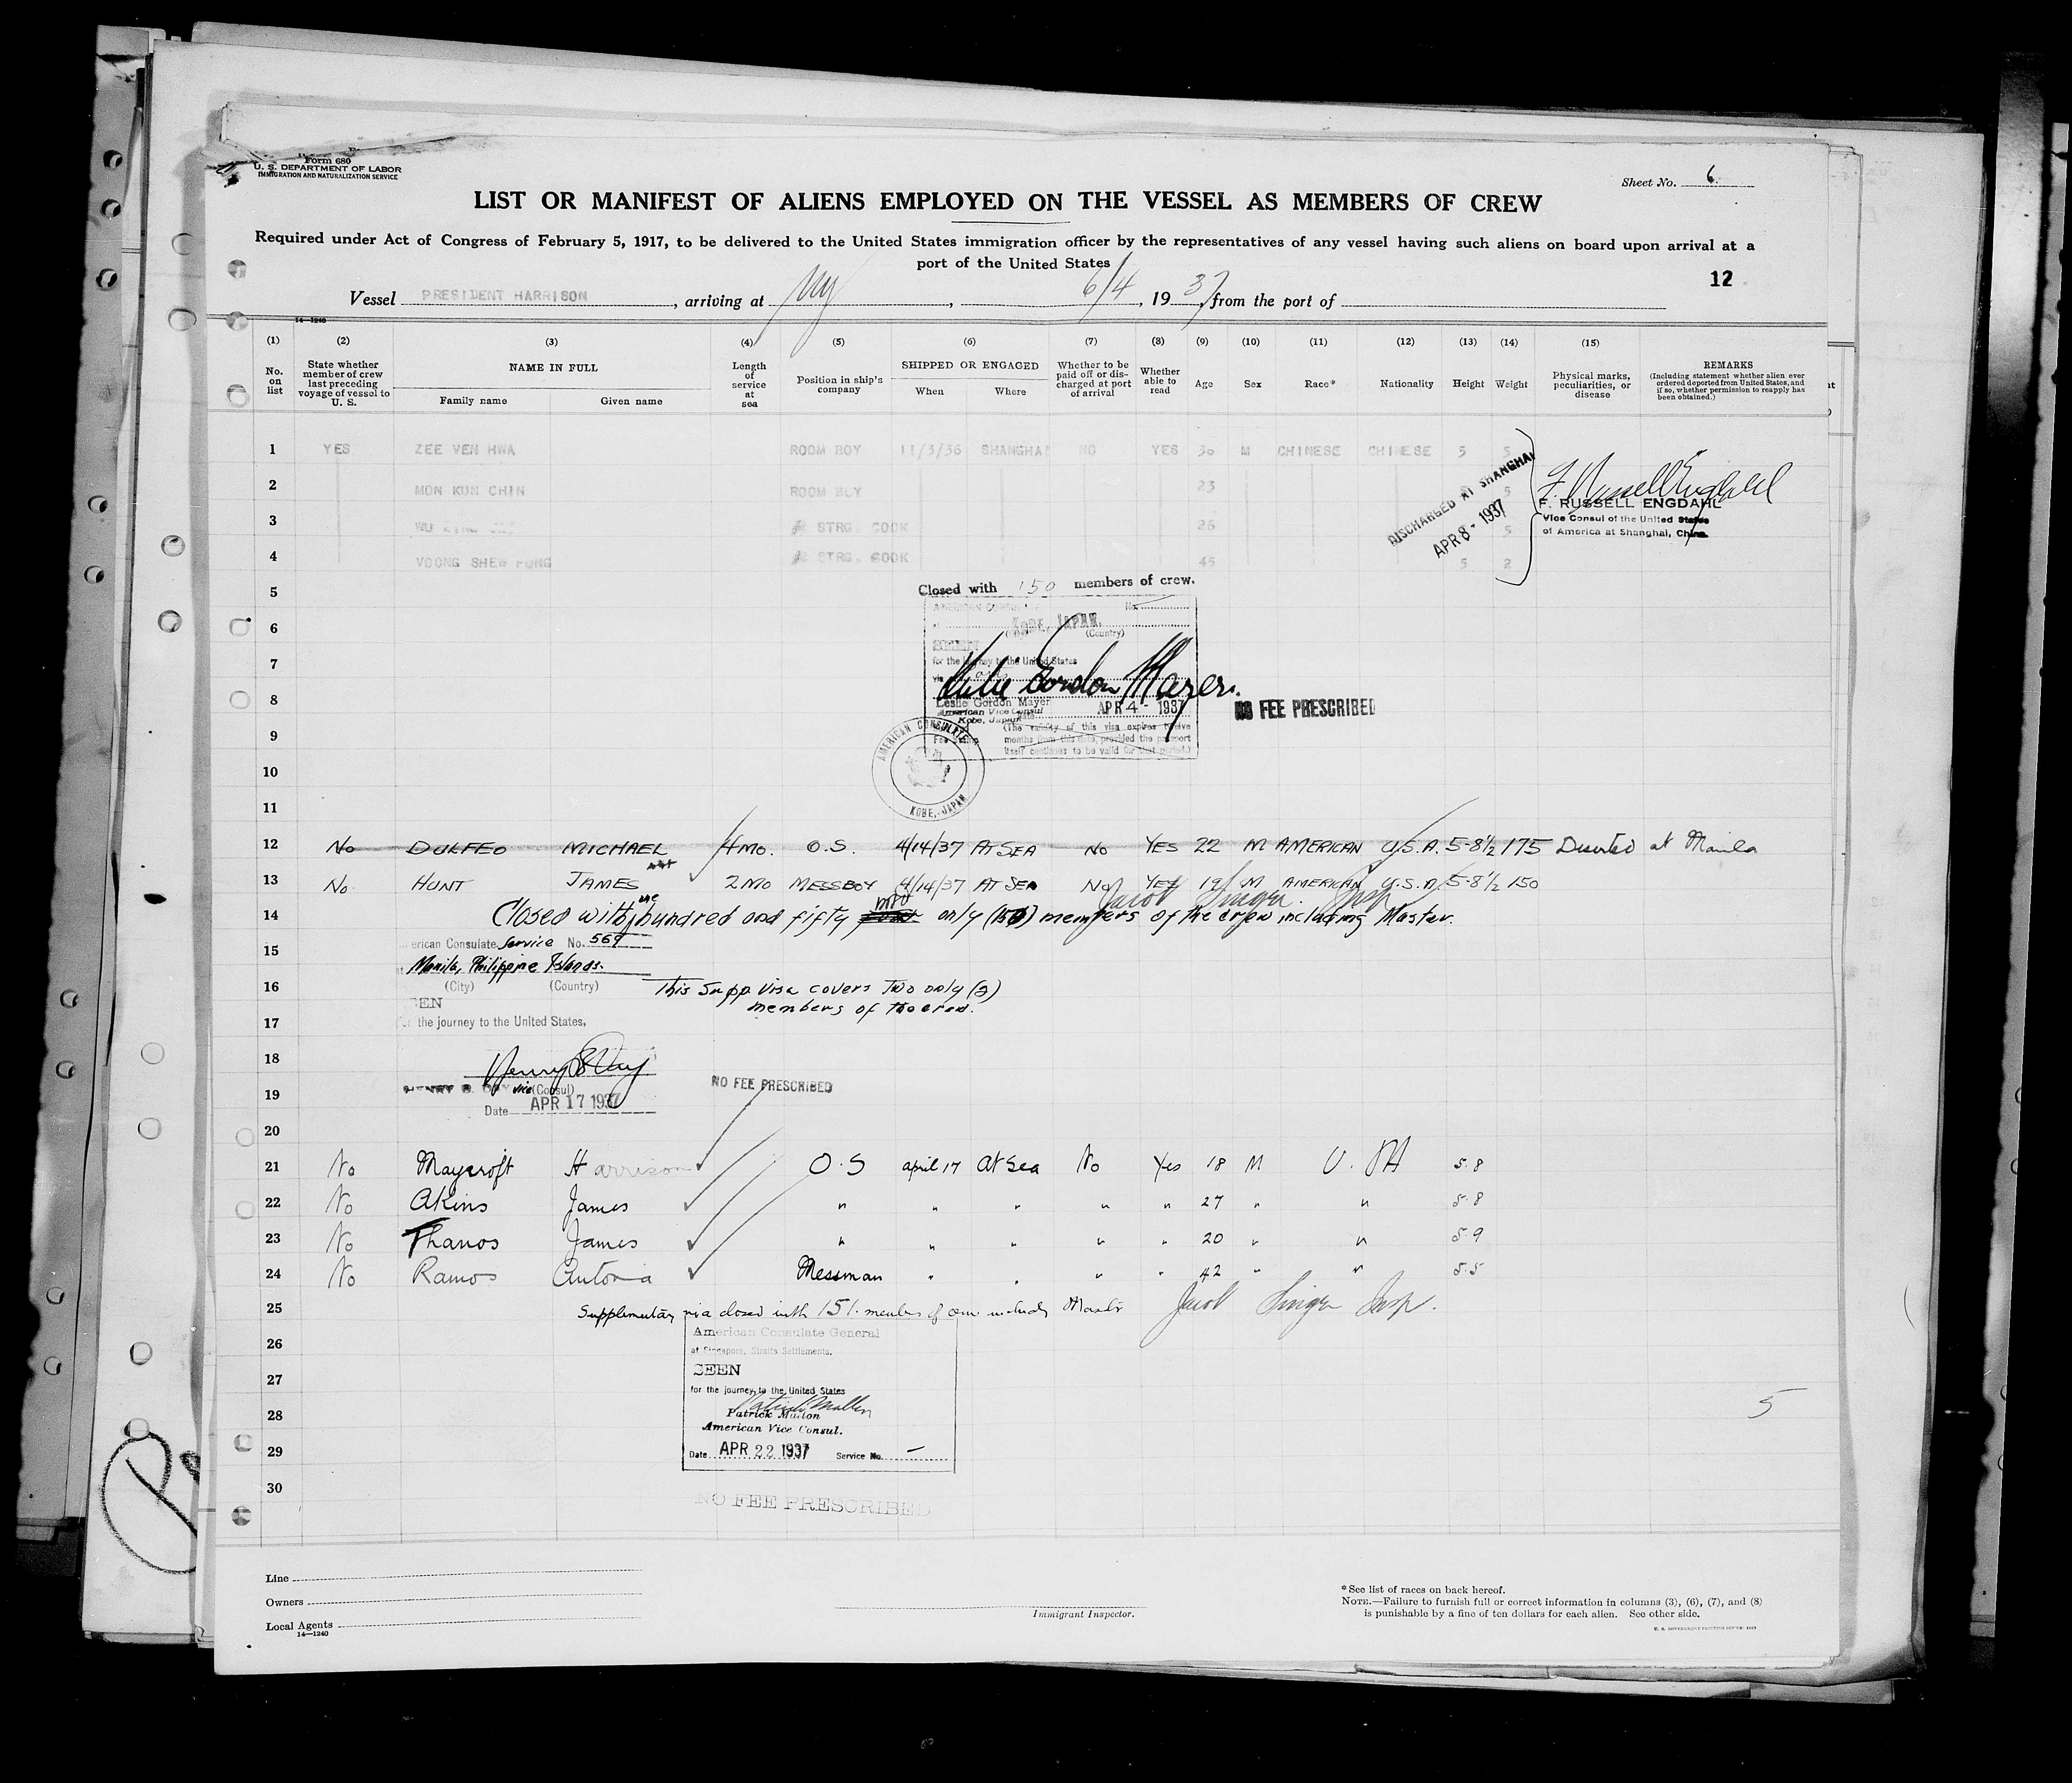 Form 680
U. S. DEPARTMENT OF LABOR
IMMIGRATION AND NATURALIZATION SERVICE
Sheet No. 6
LIST OR MANIFEST OF ALIENS EMPLOYED ON THE VESSEL AS MEMBERS OF CREW
Required under Act of Congress of February 5, 1917, to be delivered to the United States immigration officer by the representatives of any vessel having such aliens on board upon arrival at a
port of the United States
12
Vessel PRESIDENT HARRISON, arriving at NY, 6/4, 1937, from the port of
14—1240
(1) (2) (3) (4) (5) (6) (7) (8) (9) (10) (11) (12) (13) (14) (15)
No. on list
State whether member of crew last preceding voyage of vessel to U. S.
NAME IN FULL
Family name Given name
Length of service at sea
Position in ship's company
SHIPPED OR ENGAGED
When Where
Whether to be paid off or discharged at port of arrival
Whether able to read
Age
Sex
Race*
Nationality
Height
Weight
Physical marks, peculiarities, or disease
REMARKS
(Including statement whether alien ever ordered deported from United States, and if so, whether permission to reapply has been obtained.)
1 YES ZEE VEN HWA ROOM BOY 11/3/36 SHANGHAI NO YES 30 M CHINESE CHINESE 5 5
2 MON KUN CHIN ROOM BOY 23 5
3 WU STRG. COOK 26 5
4 VOONG SHEW FONG STRG. COOK 45 5 2
DISCHARGED AT SHANGHAI
APR 8 - 1937
F. Russell Engdahl
F. RUSSELL ENGDAHL
Vice Consul of the United States
of America at Shanghai, China.
5
Closed with 150 members of crew.
AMERICAN CONSULATE No.
6
KOBE, JAPAN.
(Country)
SEEN
7
for the journey to the United States
Leslie Gordon Mayer
8
Leslie Gordon Mayer
American Vice Consul
Kobe, Japan
APR 4 - 1937
NO FEE PRESCRIBED
9
(The validity of this visa expires twelve
months from this date, provided the passport
itself continues to be valid for that period.)
AMERICAN CONSULATE
KOBE, JAPAN
10
11
12 No DULFEO MICHAEL 4 MO. O.S. 4/14/37 AT SEA No YES 22 M AMERICAN U.S.A. 5-8½ 175 Deserted at Manila
13 No HUNT JAMES 2 MO MESSBOY 4/14/37 AT SEA No YES 19 M AMERICAN U.S.A 5-8½ 150
Jacob Singer Insp
14 Closed with one hundred and fifty only (150) members of the crew including Master.
15
American Consulate Service No. 569
Manila, Philippine Islands.
(City) (Country)
16
This Supp. visa covers Two only (2)
members of the crew.
SEEN
17
for the journey to the United States,
18
Henry B. Day
19
HENRY B. DAY Vice (Consul)
Date APR 17 1937
NO FEE PRESCRIBED
20
21 No Maycroft Harrison O.S April 17 At Sea No Yes 18 M U.SA 5.8
22 No Akins James " " " " " 27 " " 5.8
23 No Thanos James " " " " " 20 " " 5.9
24 No Ramos Antonia Messman " " " " 42 " " 5.5
25 Supplementary visa closed with 151 members of crew including Master Jacob Singer Insp.
26
American Consulate General
at Singapore, Straits Settlements.
SEEN
27
for the journey to the United States
28
Patrick Mallon
American Vice Consul.
5
29
Date APR 22 1937 Service No. —
30
NO FEE PRESCRIBED
Line
Owners
Local Agents
14—1240
Immigrant Inspector.
*See list of races on back hereof.
NOTE.—Failure to furnish full or correct information in columns (3), (6), (7), and (8)
is punishable by a fine of ten dollars for each alien. See other side.